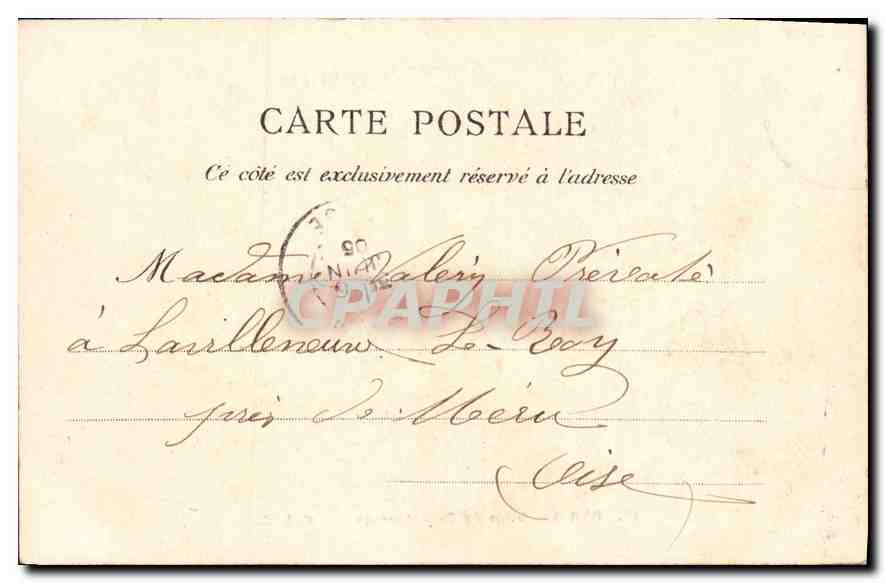 CARTE POSTALE
Ce côté est exclusivement réservé à l'adresse
Madame Valéry Prévoté
à Lavilleneuve Le-Roy
près de Méru
Oise
CPAPHIL